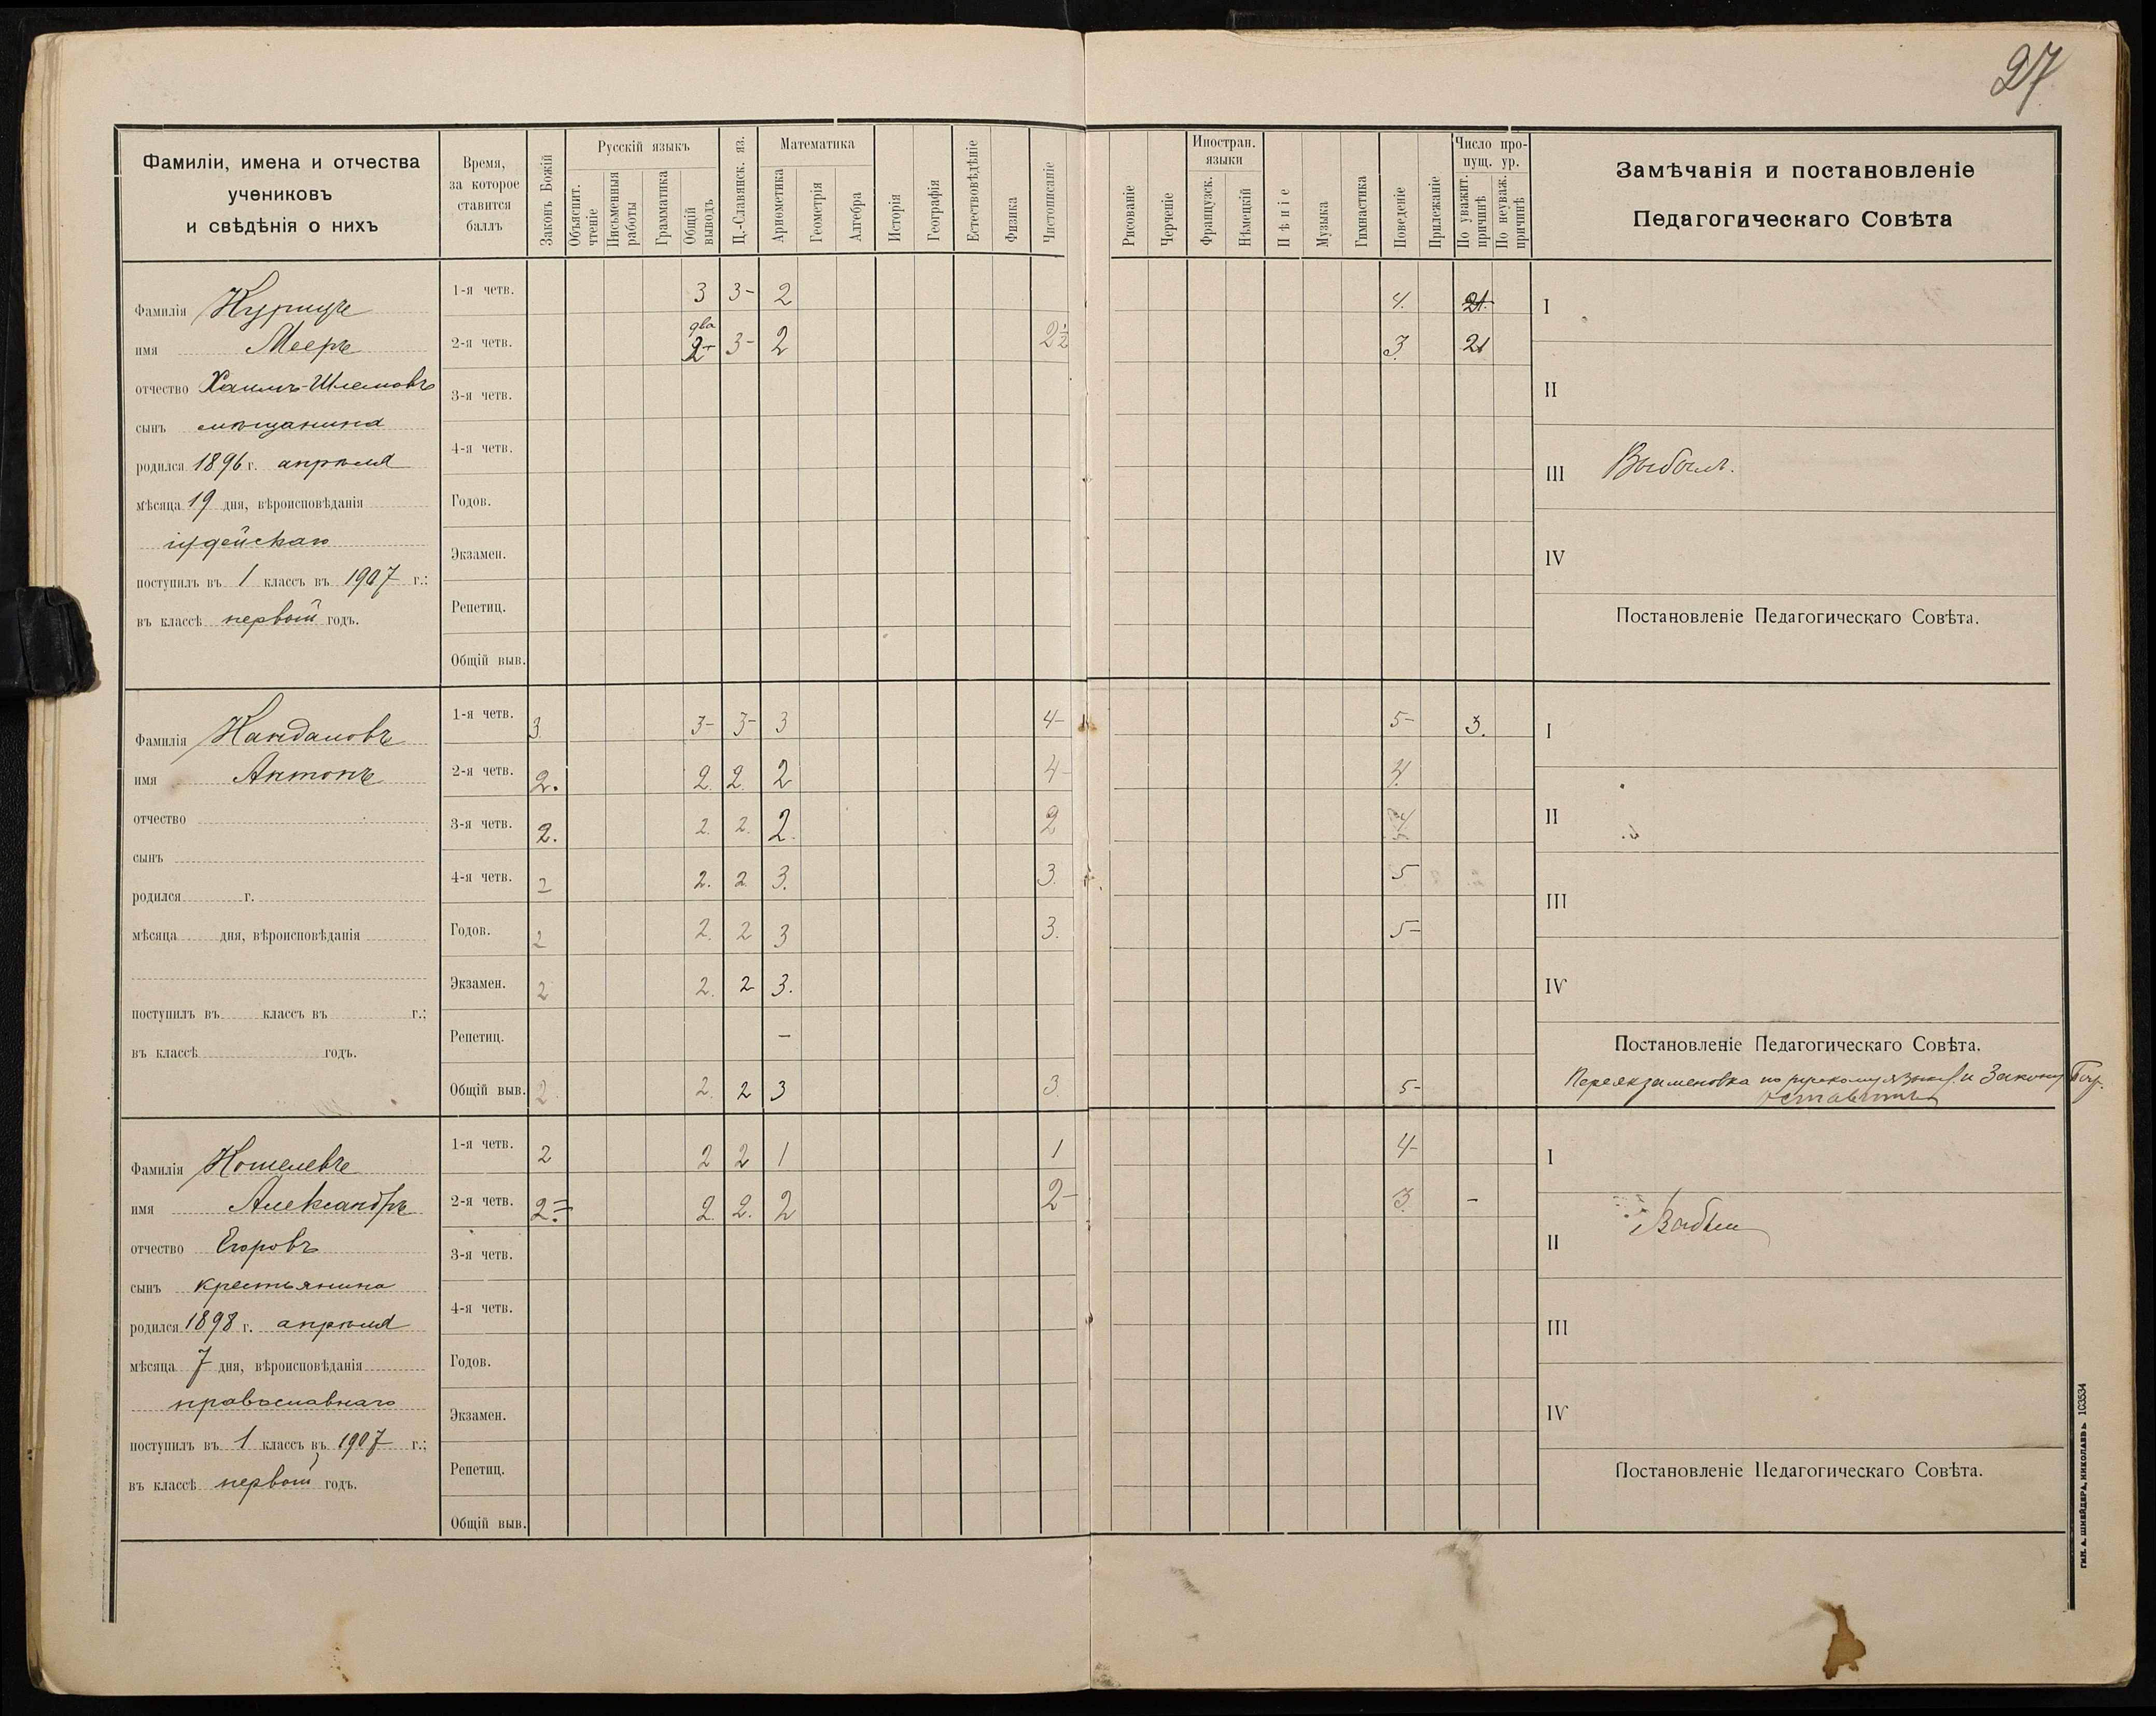 27
Фамиліи, имена и отчества
учениковъ
и свѣдѣнія о нихъ
Время,
за которое
ставится
баллъ
Законъ Божій
Русскій языкъ
Объяснит.
чтеніе
Письменныя
работы
Грамматика
Общій
выводъ
Ц.-Славянск. яз.
Математика
Ариѳметика
Геометрія
Алгебра
Исторія
Географія
Естествовѣдѣніе
Физика
Чистописаніе
Рисованіе
Черченіе
Иностран.
языки
Французск.
Нѣмецкій
Пѣніе
Музыка
Гимнастика
Поведеніе
Прилежаніе
Число про-
пущ. ур.
По уважит.
причинѣ
По неуваж.
причинѣ
Замѣчанія и постановленіе
Педагогическаго Совѣта
Фамилія Курицъ
имя Мееръ
отчество Хаимъ-Шлемовъ
сынъ мѣщанина
родился 1896 г. апрѣля
мѣсяца 19 дня, вѣроисповѣданія
іудейскаго
поступилъ въ 1 классъ въ 1907 г.;
въ классѣ первый годъ.
1-я четв. 3 3- 2 4. 21.
2-я четв. два 2+ 3- 2 2½ 3. 21
3-я четв.
4-я четв.
Годов.
Экзамен.
Репетиц.
Общій выв.
I
II
III Выбылъ.
IV
Постановленіе Педагогическаго Совѣта.
Фамилія Кандаловъ
имя Антонъ
отчество
сынъ
родился г.
мѣсяца дня, вѣроисповѣданія
поступилъ въ классъ въ г.;
въ классѣ годъ.
1-я четв. 3. 3- 3- 3 4- 5- 3.
2-я четв. 2. 2. 2. 2 4- 4.
3-я четв. 2. 2. 2. 2. 2 4
4-я четв. 2 2. 2. 3. 3. 5
Годов. 2 2. 2 3 3. 5-
Экзамен. 2 2. 2 3.
Репетиц. —
Общій выв. 2 2. 2 3 3 5-
I
II
III
IV
Постановленіе Педагогическаго Совѣта.
Переэкзаменовка по русскому языку и Закону Бож.
Оставить
Фамилія Кошелевъ
имя Александръ
отчество Егоровъ
сынъ крестьянина
родился 1898 г. апрѣля
мѣсяца 7 дня, вѣроисповѣданія
православнаго
поступилъ въ 1 классъ въ 1907 г.;
въ классѣ первый годъ.
1-я четв. 2 2 2 1 1 4-
2-я четв. 2= 2. 2. 2 2- 3. -
3-я четв.
4-я четв.
Годов.
Экзамен.
Репетиц.
Общій выв.
I
II Выбылъ
III
IV
Постановленіе Педагогическаго Совѣта.
ТИП. А. ШНЕЙДЕРА, НИКОЛАЕВЪ 103534